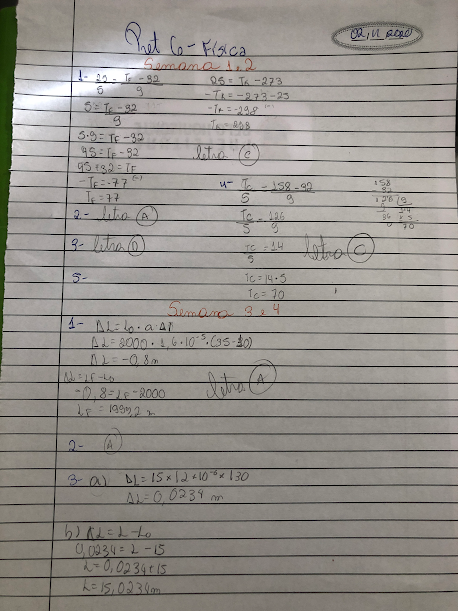 Pet 6 - Física
02,11,2020
Semana 1 e 2
1- 25 = TF - 32
5 9
5 = TF - 32
9
5.9 = TF - 32
45 = TF - 32
45 + 32 = TF
- TF = -77 (-1)
TF = 77
25 = TK - 273
- TK = -273 - 25
- TK = -298 (-1)
TK = 298
letra C
2- letra A
3- letra D
4- TC = 158 - 32
5 9
TC = 126
5 9
TC = 14
5
TC = 14.5
TC = 70
letra C
158
32
126 9
14
x 5
70
5-
Semana 3 e 4
1- ΔL = Lo . a . ΔT
ΔL = 2000 . 1,6 . 10⁻⁵ .
ΔL = -0,8 m
ΔL = LF - Lo
-0,8 = LF - 2000
LF = 1999,2 m
letra A
2- A
3- a) ΔL = 15 x 12 x 10⁻⁶ x 130
ΔL = 0,0234 m
b) ΔL = L - Lo
0,0234 = L - 15
L = 0,0234 + 15
L = 15,0234 m